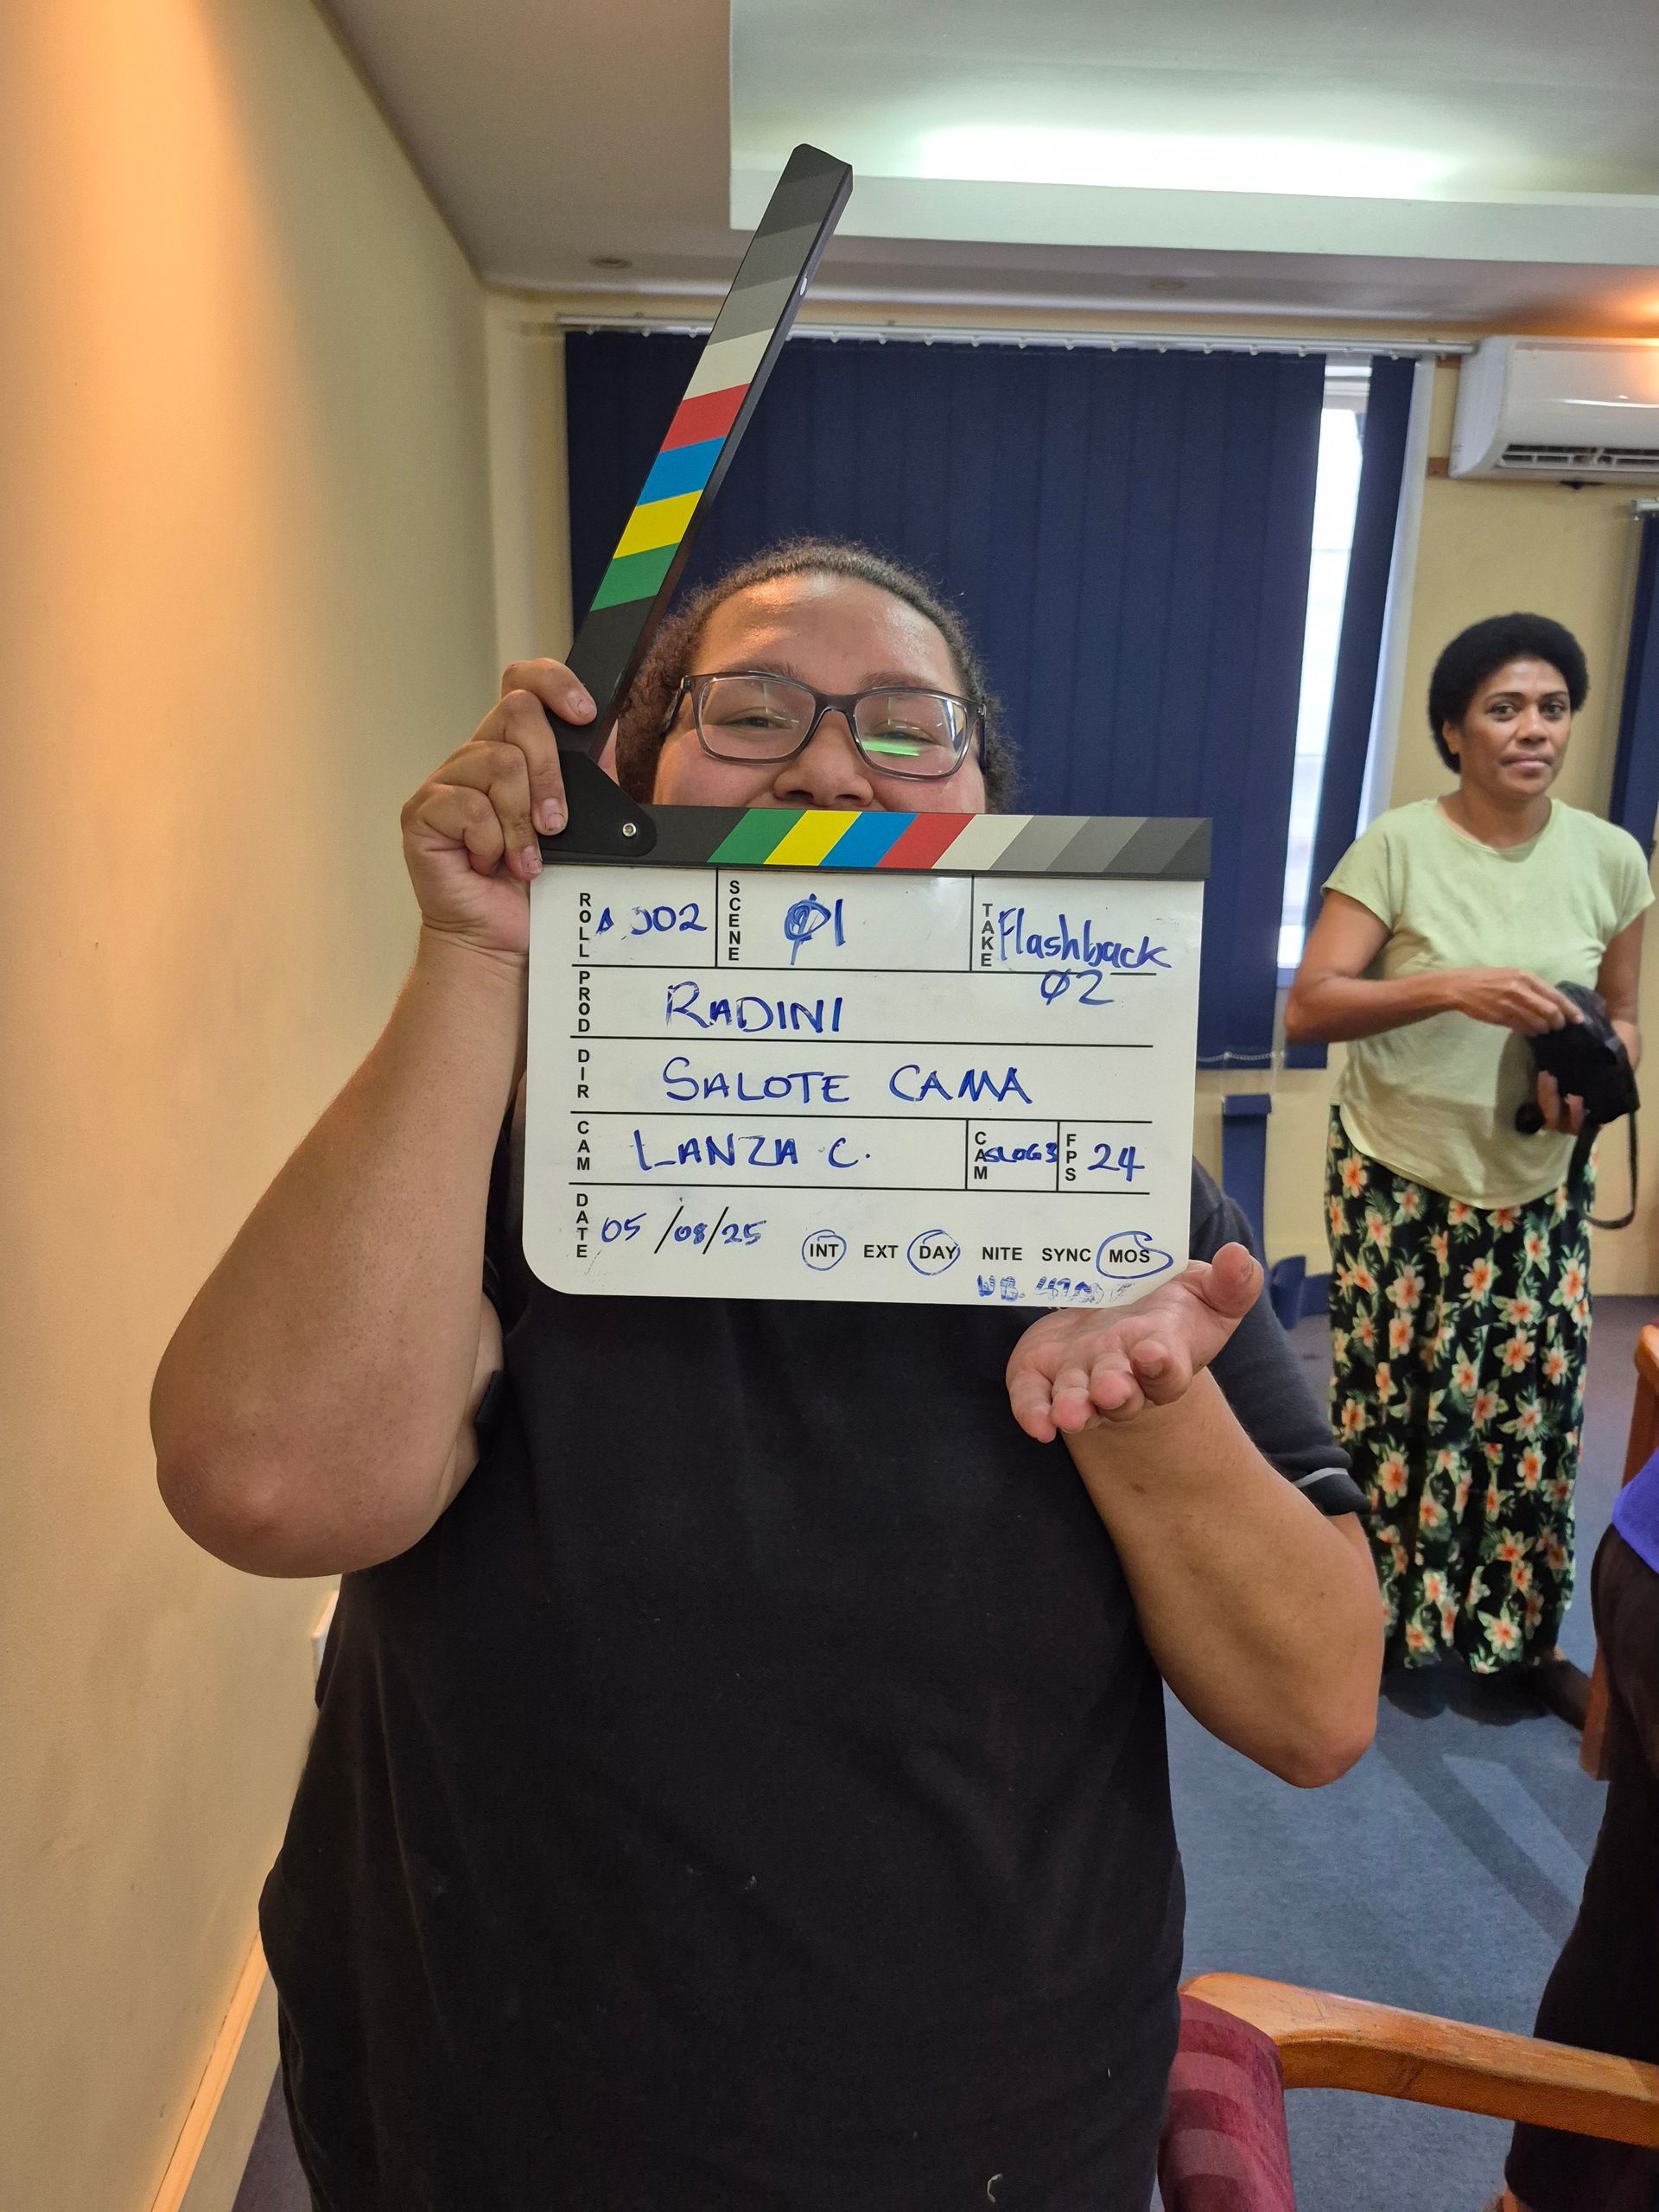 ROLL A 002 SCENE 01 TAKE Flashback
02
PROD RADINI
DIR SALOTE CAMA
CAM LANZA C. CAM SLOG3 FPS 24
DATE 05/08/25
INT EXT DAY NITE SYNC MOS
WB.